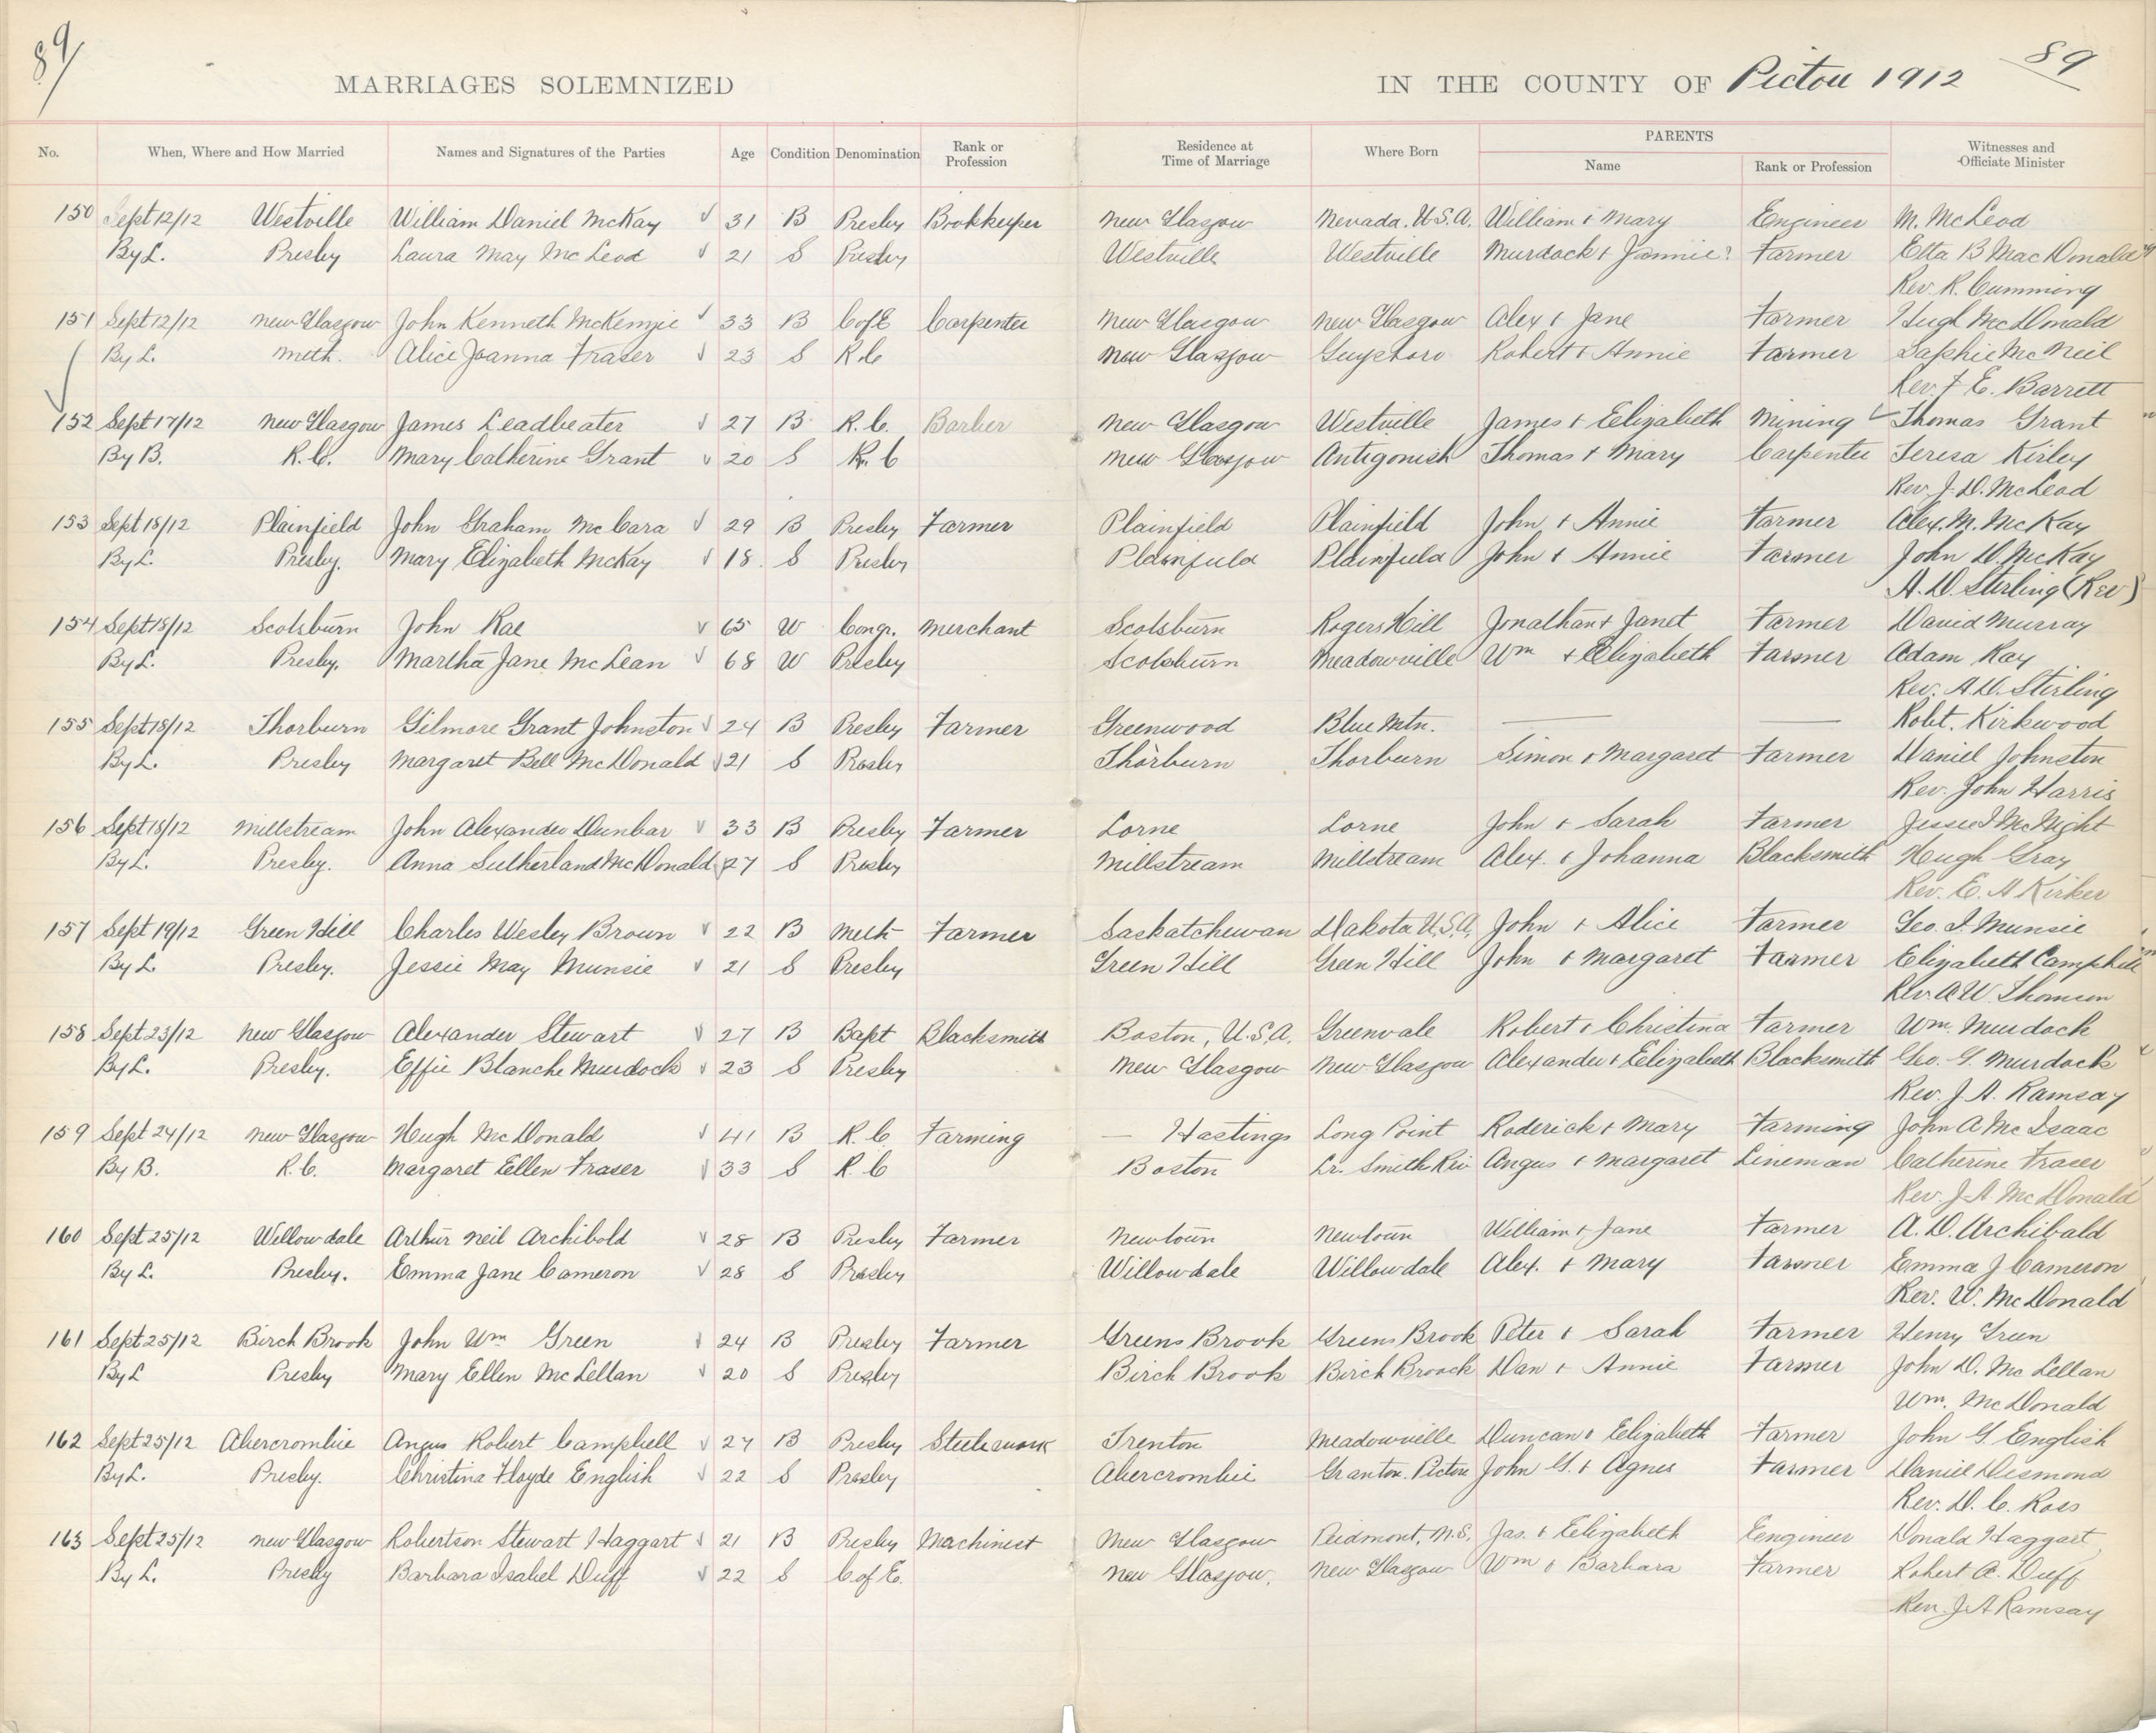 89 89
MARRIAGES SOLEMNIZED IN THE COUNTY OF Pictou 1912
No. When, Where and How Married Names and Signatures of the Parties Age Condition Denomination Rank or Profession Residence at Time of Marriage Where Born PARENTS Name Rank or Profession Witnesses and Officiate Minister
150 Sept 12/12 Westville William Daniel McKay √ 31 B Presby Bookkeeper New Glasgow Nevada. U.S.A. William & Mary Engineer M. McLeod
By L. Presby Laura May McLeod √ 21 S Presby Westville Westville Murdock & Jannie? Farmer Etta B MacDonald
Rev. R. Cumming
151 Sept 12/12 New Glasgow John Kenneth McKenzie √ 33 B C of E Carpenter New Glasgow New Glasgow Alex & Jane Farmer Hugh McDonald
By L. Meth. Alice Joanna Fraser √ 23 S R.C New Glasgow Guysboro Robert & Annie Farmer Saphie McNeil
Rev. F E. Barrett
152 Sept 17/12 New Glasgow James Leadbeater √ 27 B R.C. Barber New Glasgow Westville James & Elizabeth Mining Thomas Grant
By B. R.C. Mary Catherine Grant √ 20 S R.C New Glasgow Antigonish Thomas & Mary Carpenter Teresa Kirley
Rev. J. D. McLeod
153 Sept 18/12 Plainfield John Graham McCara √ 29 B Presby Farmer Plainfield Plainfield John & Annie Farmer Alex. M. McKay
By L. Presby. Mary Elizabeth McKay √ 18. S Presby Plainfield Plainfield John & Annie Farmer John D. McKay
A. D. Stirling (Rev)
154 Sept 18/12 Scotsburn John Rae √ 65 W Congr. Merchant Scotsburn Rogers Hill Jonathan & Janet Farmer David Murray
By L. Presby. Martha Jane McLean √ 68 W Presby Scotsburn Meadowville Wm & Elizabeth Farmer Adam Ray
Rev. A. D. Stirling
155 Sept 18/12 Thorburn Gilmore Grant Johnston √ 24 B Presby Farmer Greenwood Blue Mtn. — — Robt. Kirkwood
By L. Presby Margaret Bell McDonald √ 21 S Presby Thorburn Thorburn Simon & Margaret Farmer Daniel Johnston
Rev. John Harris
156 Sept 18/12 Millstream John Alexander Dunbar √ 33 B Presby Farmer Lorne Lorne John & Sarah Farmer
By L. Presby. Anna Sutherland McDonald √ 27 S Presby Millstream Millstream Alex. & Johanna Blacksmith Hugh Gray
Rev. E. A Kirker
157 Sept 19/12 Green Hill Charles Wesley Brown √ 22 B Meth Farmer Saskatchewan Dakota U.S.A. John & Alice Farmer Geo. I. Munsie
By L. Presby. Jessie May Munsie √ 21 S Presby Green Hill Green Hill John & Margaret Farmer Elizabeth Campbell
Rev A W. Thomson
158 Sept 23/12 New Glasgow Alexander Stewart √ 27 B Bapt Blacksmith Boston, U.S.A. Greenvale Robert & Christina Farmer Wm. Murdock
By L. Presby. Effie Blanche Murdock √ 23 S Presby New Glasgow New Glasgow Alexander & Elizabeth Blacksmith Geo. G. Murdock
Rev. J. A. Ramsay
159 Sept 24/12 New Glasgow Hugh McDonald √ 41 B R.C. Farming — Hastings Long Point Roderick & Mary Farming John A. McIsaac
By B. R.C. Margaret Ellen Fraser √ 33 S R.C Boston Lr. Smith Riv Angus & Margaret Lineman Catherine Fraser
Rev. J. A. McDonald
160 Sept 25/12 Willowdale Arthur Neil Archibold √ 28 B Presby Farmer Newtoun Newtoun William & Jane Farmer A. D. Archibald
By L. Presby. Emma Jane Cameron √ 28 S Presby Willowdale Willowdale Alex. & Mary Farmer Emma J Cameron
Rev. W. McDonald
161 Sept 25/12 Birch Brook John Wm Green √ 24 B Presby Farmer Greens Brook Greens Brook Peter & Sarah Farmer Henry Green
By L Presby Mary Ellen McLellan √ 20 S Presby Birch Brook Birch Broock Dan & Annie Farmer John D. McLellan
Wm. McDonald
162 Sept 25/12 Abercrombie Angus Robert Campbell √ 27 B Presby Steelework Trenton Meadowville Duncan & Elizabeth Farmer John G. English
By L. Presby. Christina Floyde English √ 22 S Presby Abercrombie Granton. Pictou John G. & Agnes Farmer Daniel Desmond
Rev. D. C. Ross
163 Sept 25/12 New Glasgow Robertson Stewart Haggart √ 21 B Presby Machinest New Glasgow Peidmont, N.S. Jas. & Elizabeth Eengineer Donald Haggart
By L. Presby Barbara Isabel Duff √ 22 S C. of E. New Glasgow. New Glasgow Wm & Barbara Farmer Robert A. Duff
Rev. J A Ramsay